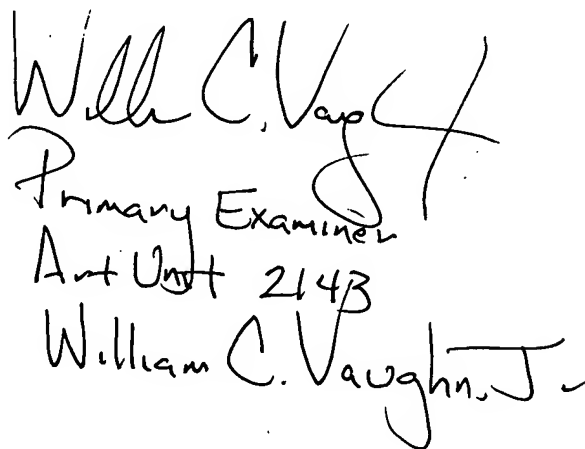 Will C. Vaugh Jr.
Primary Examiner
Art Unit 2143
William C. Vaughn, Jr.